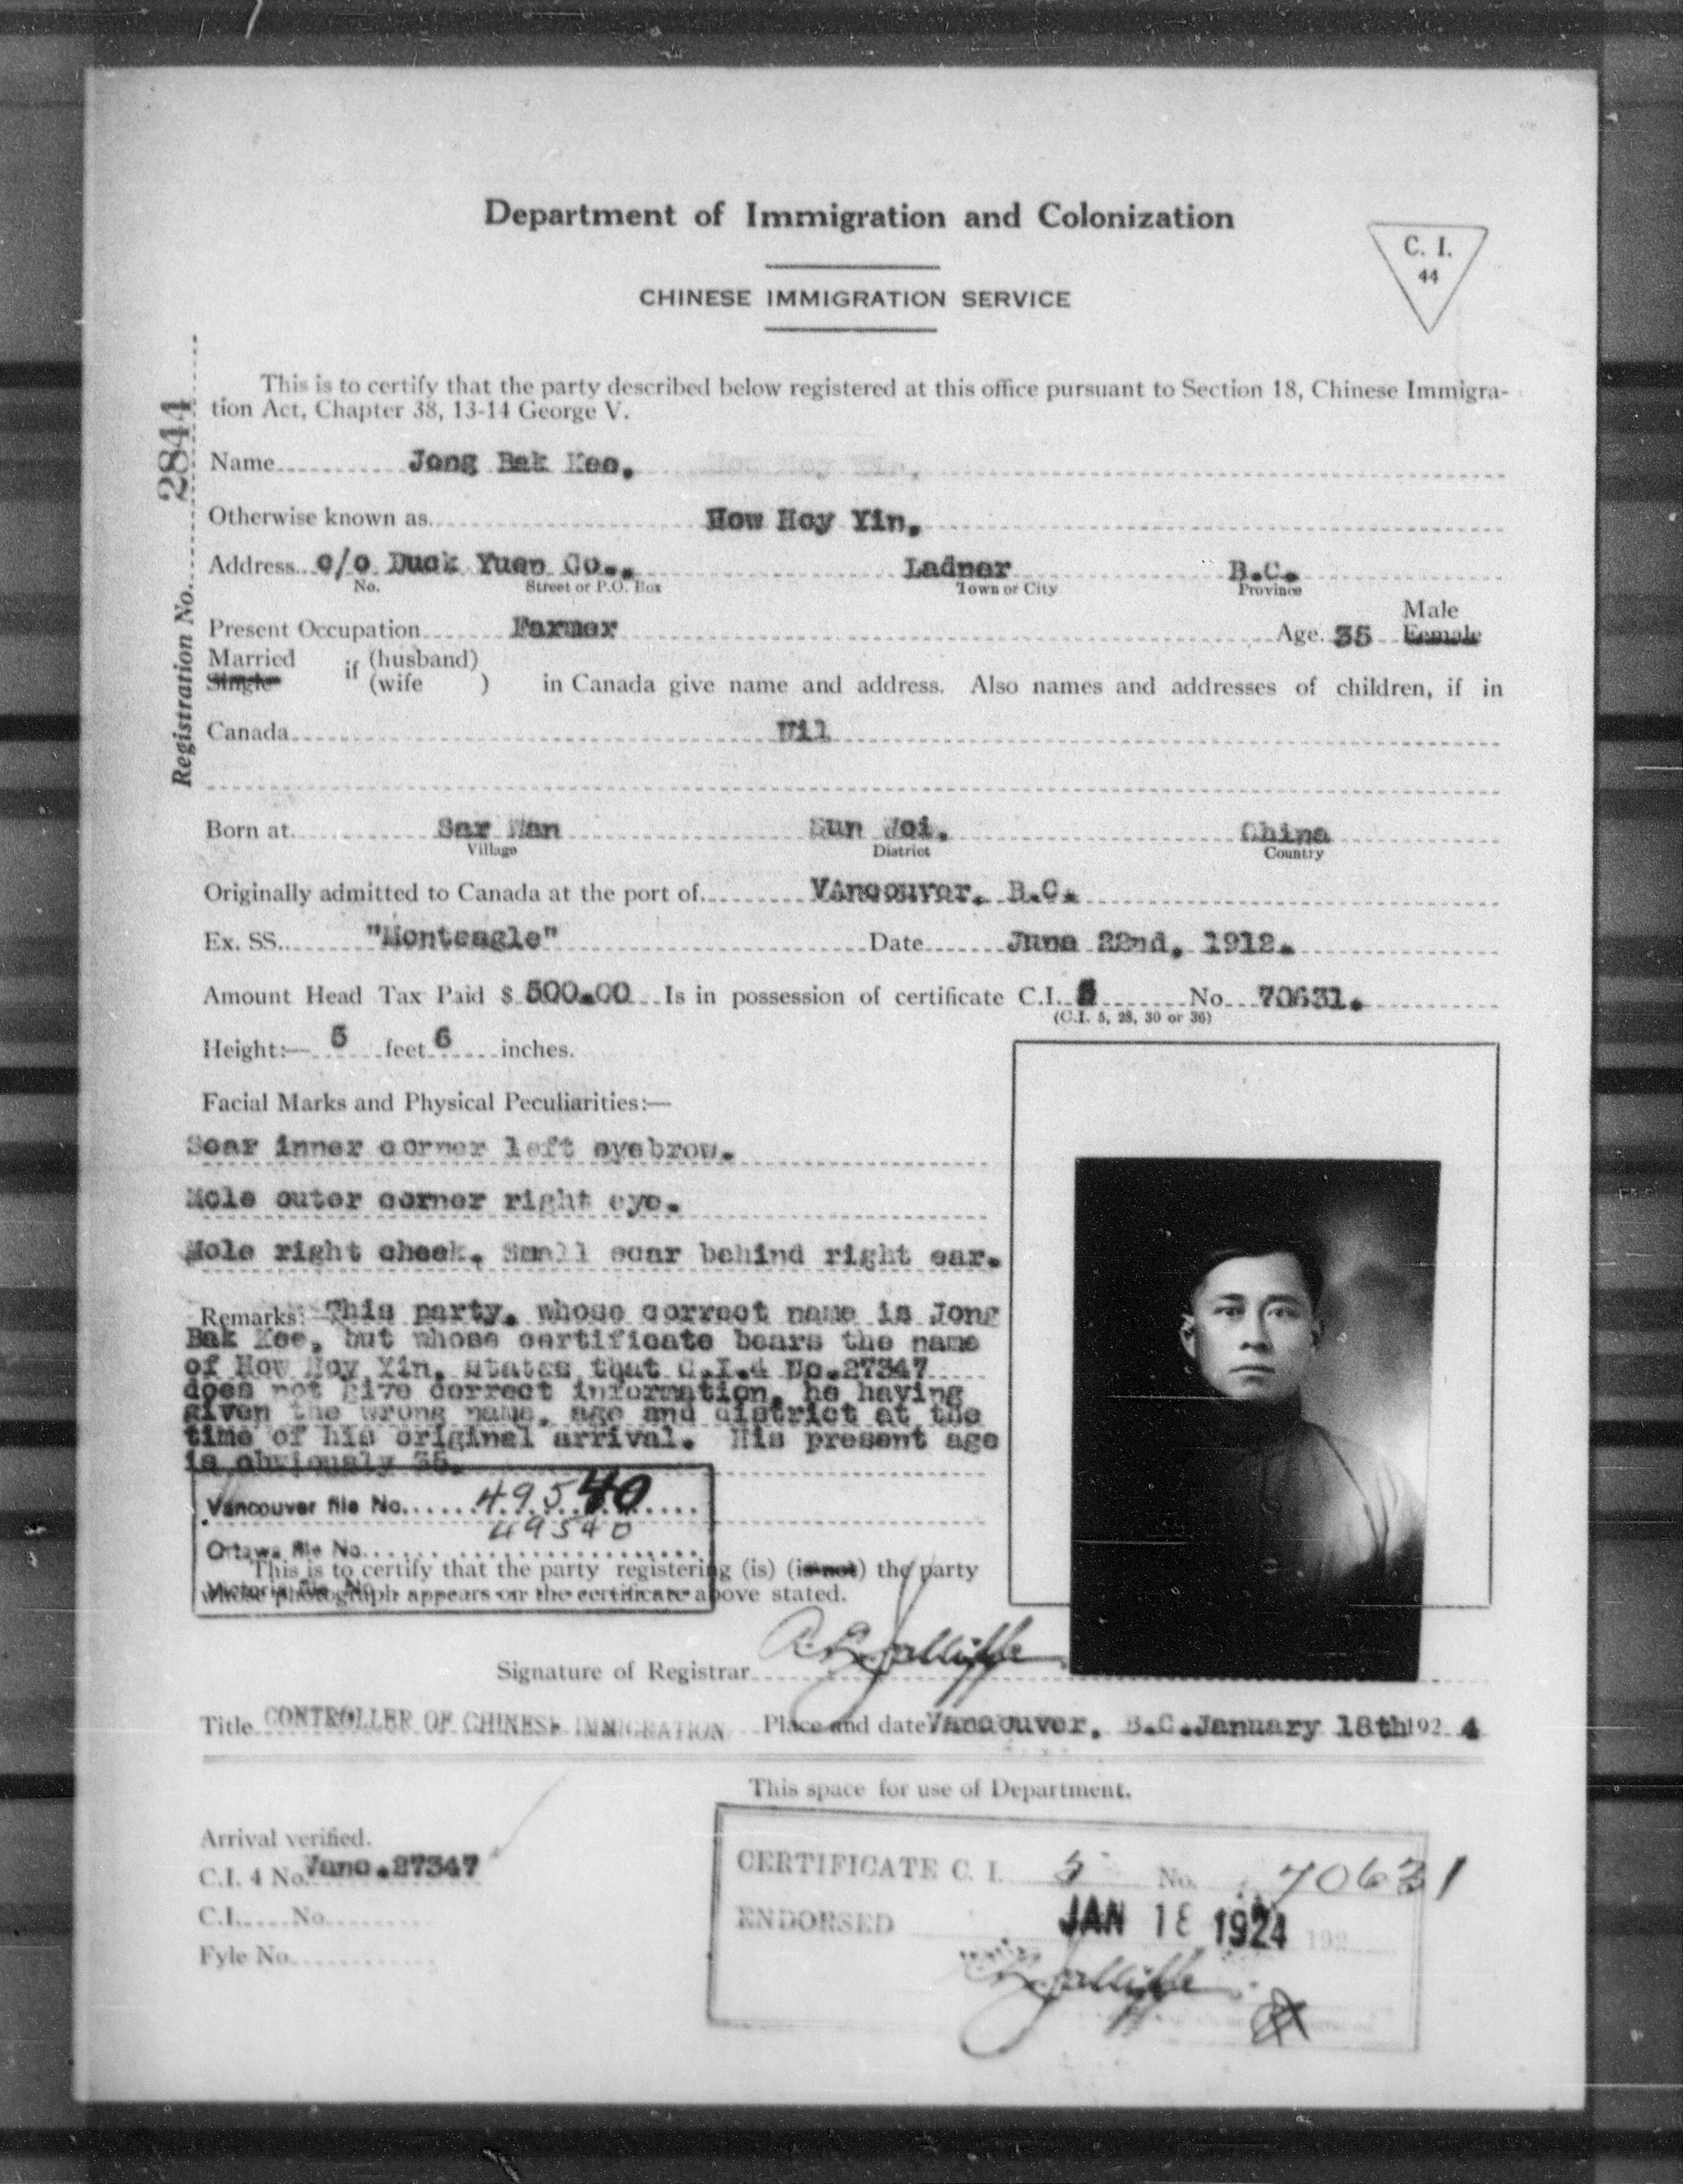 Department of Immigration and Colonization
C. I.
44
CHINESE IMMIGRATION SERVICE
Registration No. 2844
This is to certify that the party described below registered at this office pursuant to Section 18, Chinese Immigra-
tion Act, Chapter 38, 13-14 George V.
Name Jong Bak Kee.
Otherwise known as How Hoy Yin.
Address c/o Duck Yuen Co., Ladner B.C.
No. Street or P.O. Box Town or City Province
Male
Present Occupation Farmer Age 35 Female
Married if (husband)
Single (wife ) in Canada give name and address. Also names and addresses of children, if in
Canada Nil
Born at Sar Wan Sun Woi. China
Village District Country
Originally admitted to Canada at the port of VAncouver, B.C.
Ex. SS. "Monteagle" Date June 22nd, 1912.
Amount Head Tax Paid $ 500.00 Is in possession of certificate C.I. 5 No 70631.
(C.I. 5, 28, 30 or 36)
Height:— 5 feet 6 inches.
Facial Marks and Physical Peculiarities:—
Scar inner corner left eyebrow.
Mole outer corner right eye.
Mole right cheek. Small scar behind right ear.
Remarks: This party, whose correct name is Jong
Bak Kee, but whose certificate bears the name
of How Hoy Yin, states that C.I.4 No.27347
does not give correct information, he having
given the wrong name, age and district at the
time of his original arrival. His present age
is obviously 35.
Vancouver file No. 49540
49540
Ottawa file No.
Victoria file No.
This is to certify that the party registering (is) (is not) the party
whose photograph appears on the certificate above stated.
Signature of Registrar
Title CONTROLLER OF CHINESE IMMIGRATION Place and date Vancouver, B.C. January 18th 192 4
This space for use of Department.
Arrival verified.
C.I. 4 No. Vanc.27347
C.I. No.
Fyle No.
CERTIFICATE C. I. 5 No. 70631
ENDORSED JAN 18 1924 192